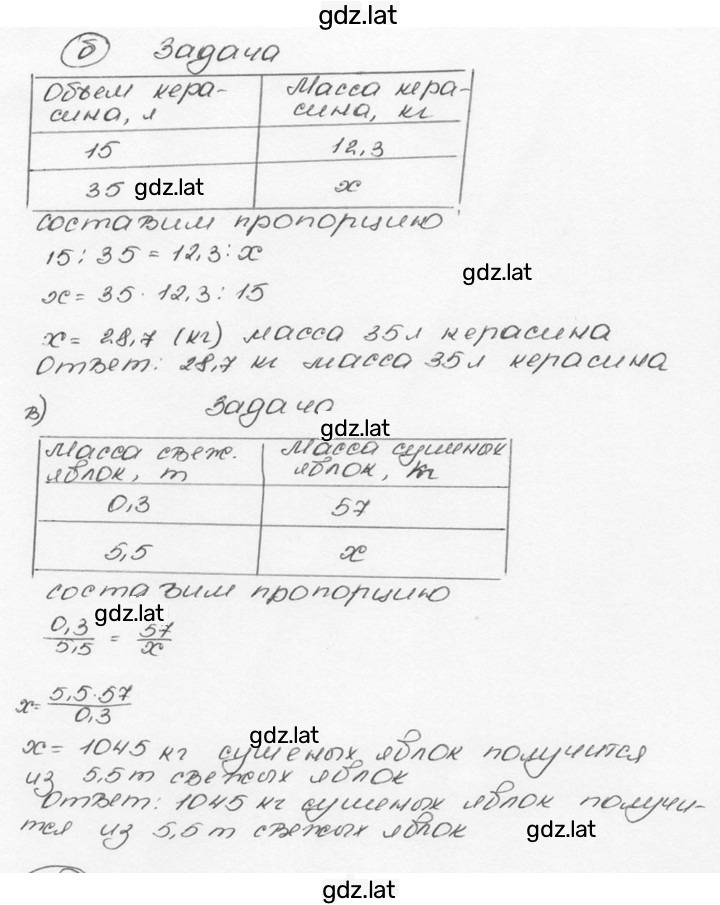 gdz.lat
б Задача
Объем кера-
сина, л
Масса кера-
сина, кг
15
12,3
35
gdz.lat
x
составим пропорцию
15 : 35 = 12,3 : x
gdz.lat
x = 35 · 12,3 : 15
x = 28,7 (кг) масса 35 л керасина
Ответ: 28,7 кг масса 35 л керасина
в) Задача
gdz.lat
Масса свеж.
яблок, т
Масса сушеных
яблок, кг
0,3
57
5,5
x
составим пропорцию
gdz.lat
0,3/5,5 = 57/x
x = 5,5·57/0,3
gdz.lat
x = 1045 кг сушеных яблок получится
из 5,5 т свежих яблок
Ответ: 1045 кг сушеных яблок получи-
тся из 5,5 т свежих яблок
gdz.lat
gdz.lat